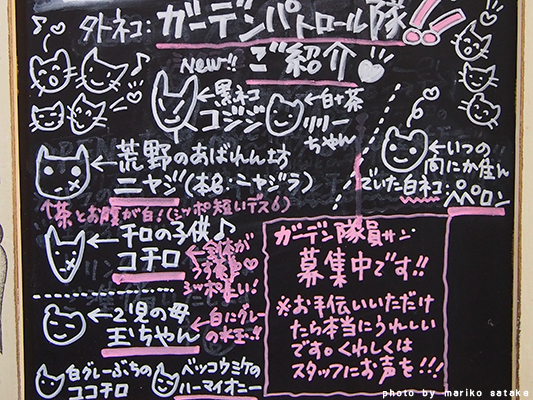 外ネコ:ガーデンパトロール隊!!
ご紹介
New!!
←黒ネコ
コジジ
←白+茶
リリー
ちゃん
←荒野のあばれん坊
ニャジ(本名・ニャジラ)
↑茶とお腹が白!(シッポ短いデス)
←いつの
間にか住ん
でいた白ネコ・
ペロン
←チロの子供♪
コチロ
←全体が
シッポ
←2児の母
玉ちゃん
←白にグレー
の水玉!!
白グレーぶちの
ココチロ
ベッコウミケの
ハーマイオニー
ガーデン隊員サン・
募集中です!!
※お手伝いいただけ
たら本当にうれしい
です。くわしくは
スタッフにお声を!!!
photo by mariko satake